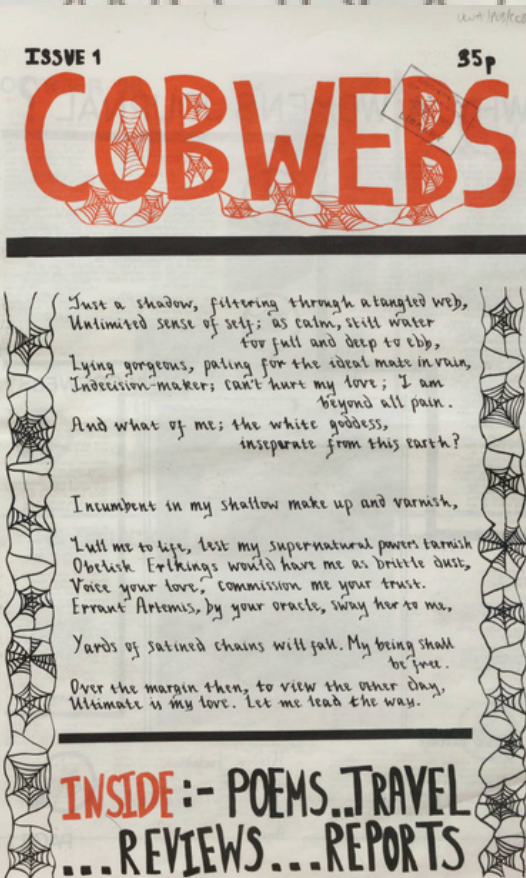 ISSUE 1
35p
COBWEBS
Just a shadow, filtering through a tangled web,
Unlimited sense of self; as calm, still water
too full and deep to ebb,
Lying gorgeous, paling for the ideal mate in vain,
Indecision-maker; can't hurt my love; I am
beyond all pain.
And what of me; the white goddess,
inseparate from this earth?
Incumbent in my shallow make up and varnish,
Lull me to life, lest my supernatural powers tarnish
Obelisk Erlkings would have me as brittle dust,
Voice your love, commission me your trust.
Errant Artemis, by your oracle, sway her to me,
Yards of satined chains will fall. My being shall
be free.
Over the margin then, to view the other day,
Ultimate is my love. Let me lead the way.
INSIDE :- POEMS..TRAVEL
...REVIEWS...REPORTS